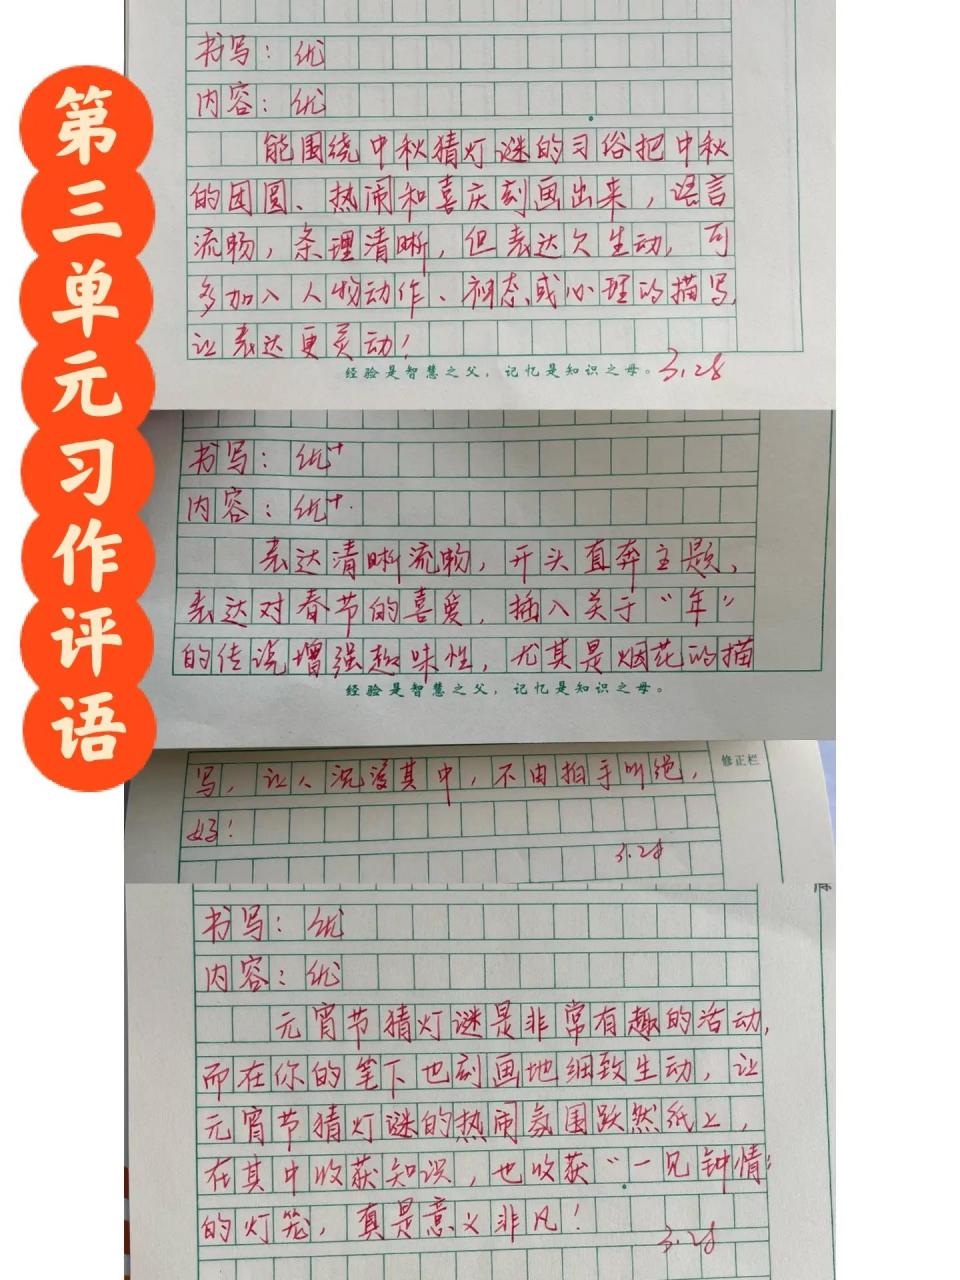 第三单元习作评语
书写：优
内容：优
能围绕中秋猜灯谜的习俗把中秋
的团圆、热闹和喜庆刻画出来，语言
流畅，条理清晰，但表达欠生动，可
多加入人物动作、神态或心理的描写，
让表达更灵动！
经验是智慧之父，记忆是知识之母。
3.28
书写：优+
内容：优+
表达清晰流畅，开头直奔主题，
表达对春节的喜爱，插入关于“年”
的传说增强趣味性，尤其是烟花的描
经验是智慧之父，记忆是知识之母。
修正栏
写，让人沉浸其中，不由拍手叫绝，
好！
3.28
书写：优
内容：优
元宵节猜灯谜是非常有趣的活动，
而在你的笔下也刻画地细致生动，让
元宵节猜灯谜的热闹氛围跃然纸上，
在其中收获知识，也收获“一见钟情”
的灯笼，真是意义非凡！
3.28